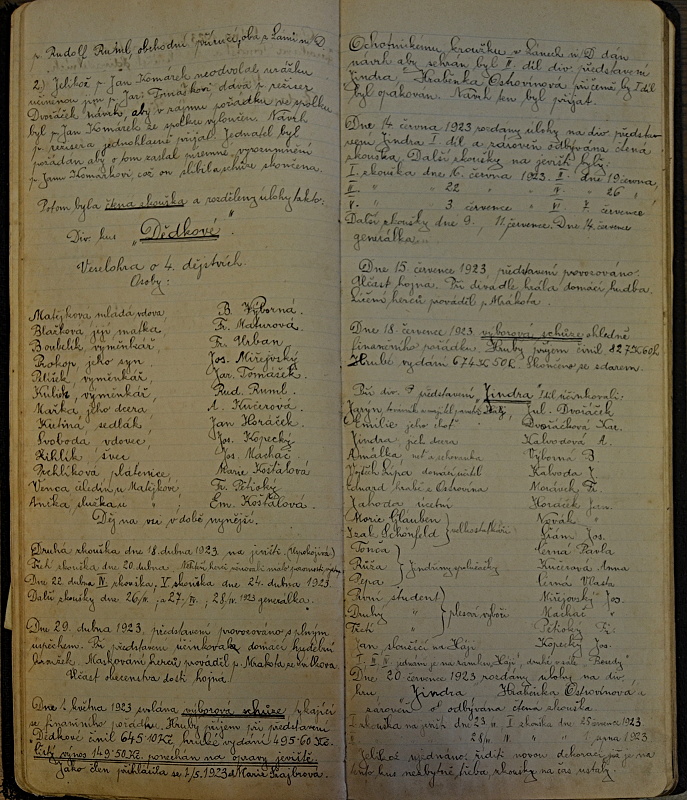 p Rudolf Ruml, obchodní příručí, oba z Lán n. D.
2) Jelikož p Jan Komárek neodvolal urážku
učiněnou pro p Jar. Tomáškovi, dává p režiser
Dvořáček návrh, aby v zájmu pořádku ve spolku
byl p Jan Komárek ze spolku vyloučen. Návrh
p režisera jednohlasně přijat. Jednatel byl
požádán aby o tom zaslal písemné vyrozumění
p Janu Komárkovi, což on slíbil a schůze skončena.
Potom byla čtena zkouška a rozděleny úlohy takto:
Div. kus „Dědkové".
Veselohra o 4. dějstvích.
Osoby:
Matějková mladá vdova B. Výborná.
Blažková její matka Fr. Machurová.
Boubelík výměnkář, Fr. Urban
Prokop, jeho syn Jos. Mířejovský
Petišek výměnkář, Jar. Tomášek.
Kulich, výměnkář, Rud. Ruml.
Mařka, jeho dcera A. Kučerová
Květina, sedlák, Jan Horáček
Svoboda vdovec Jos. Kopecký
Ziklík, švec Jos. Machač
Pecklíková platenice Marie Košťálová
Venca čeledín u Matějkové Fr. Pětioký
Ančka služka u " Em. Košťálová.
Děj na vsi, v době nynější.
Druhá zkouška dne 18. dubna 1923 na jevišti. (Uspokojivá)
Třetí zkouška dne 20. dubna. Někteří herci věnovali málo pozornosti
Dne 22 dubna IV zkouška, V zkouška dne 24. dubna 1923.
Další zkoušky dne 26/IV. a 27/IV. 28/IV. 1923 generálka.
Dne 29. dubna 1923, představení provozováno s plným
úspěchem. Při představení účinkovala domácí hudební
kroužek. Maskování herců prováděl p. Makota ze
Účast obecenstva dosti hojná.
Dne 1. května 1923 svolána výborová schůze týkající
se finančního pořádku. Hrubý příjem při představení
„Dědkové" činil 645·10 Kč, hrubé vydání 495·60 Kč.
Čistý výnos 149·50 Kč, ponechán na opravy jeviště.
Jako člen přihlásila se 2/5. 1923 Marie Krajbrová.
Ochotnickému kroužku v Lánech n. D. dán
návrh aby sehrán byl II díl div. představení
Jindra Hraběnka Ostrovínová při čemž by I díl
byl opakován. Návrh ten byl přijat.
Dne 14. června 1923 rozdány úlohy na div. představ-
vení Jindra I. díl a zároveň odbývána čtená
zkouška. Další zkoušky na jevišti byly:
I. zkouška dne 16. června 1923. II. dne 19 června,
III. " " 22 " IV. " 26 "
V. " " 3. července " VI. 7. července
Další zkoušky dne 9., 11. července. Dne 14. července
generálka.
Dne 15. července 1923, představení provozováno.
Účast hojná. Při divadle hrála domácí hudba.
Líčení herců prováděl p. Makota.
Dne 18. července 1923 výborová schůze ohledně
finančního pořádku. Hrubý příjem činil 827 K 60 h.
Hrubé vydání 674 K 50 h. Skončeno se zdarem.
Při div. představení „Jindra" I díl účinkovali:
Jaryn továrník a majitel panství Hájů, Jul. Dvořáček
Emilie jeho choť Dvořáčková Kar.
Jindra jich dcera Kalvodová A.
Amálka neť a schovanka Výborná B
Vojtěch Lípa domácí učitel Kalvoda J.
Eduard hrabě z Ostrovína Morávek Fr.
Jahoda účetní Horáček Jan
Marie Glauben Novák "
Izák Schönfeld } velkostatkáři Šrám Jos.
Tonča Černá Pavla
Růža } Jindřiny společnice Kučerová Anna
Pepa Černá Vlasta
První student Mířejovský Jos.
Druhý " } plesový výbor Machač "
Třetí " Pětioký Fr.
Jan sloužící na Háji Kopecký Jos.
I, II, IV jednání je na zámku „Háji", druhé v sále „Besedy".
Dne 20. července 1923 rozdány úlohy na div.
kus Jindra Hraběnka Ostrovínová a
zároveň odbývána čtena zkouška
I zkouška na jevišti dne 23/VII. II zkouška dne 25 července 1923
" " 28/VII " " srpna 1923
Jelikož ujednáno, říditi novou dekoraci, již je na
tento kus nezbytně třeba, zkoušky na čas ustaly.